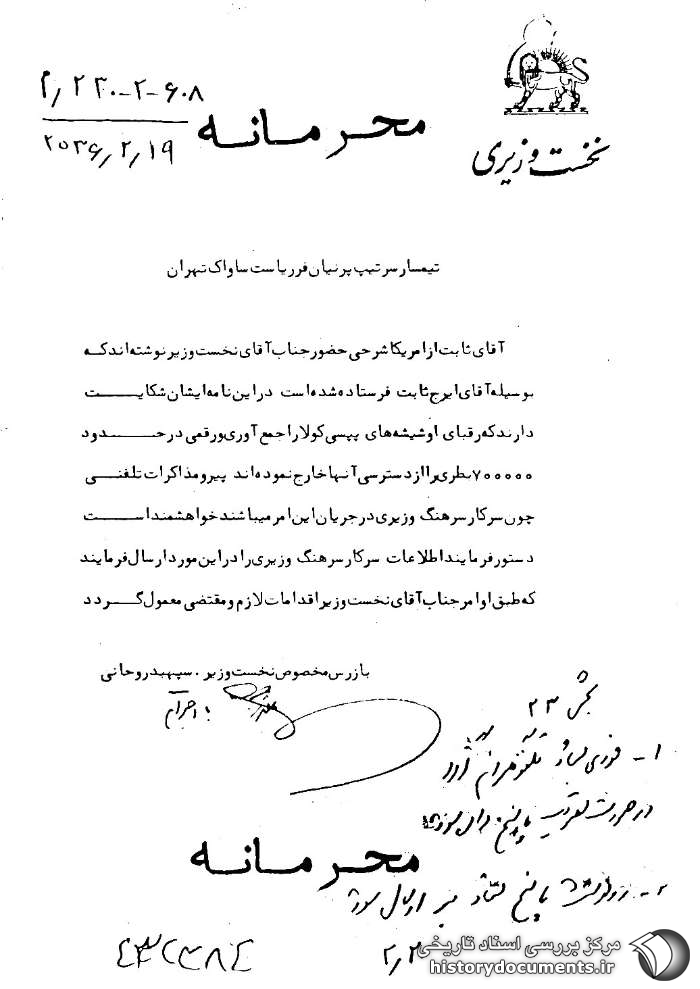 ۲۲۰-۲-۶۰۸/م
۲۵۳۶/۲/۱۹
محرمانه
نخست وزیری
تیمسار سرتیپ پرنیان فر ریاست ساواک تهران
آقای ثابت از امریکا شرحی حضور جناب آقای نخست وزیر نوشته اند که
بوسیله آقای ایرج ثابت فرستاده شده است در این نامه ایشان شکایت
دارند که رقبای او شیشه های پپسی کولا را جمع آوری و رقمی در حدود
۷۰۰۰۰۰ بطری را از دسترسی آنها خارج نموده اند پیرو مذاکرات تلفنی
چون سرکار سرهنگ وزیری در جریان این امر میباشند خواهشمند است
دستور فرمایند اطلاعات سرکار سرهنگ وزیری را در این مورد ارسال فرمایند
که طبق اوامر جناب آقای نخست وزیر اقدامات لازم و مقتضی معمول گردد
بازرس مخصوص نخست وزیر . سپهبد روحانی
با احترام
بخش ۲۳
۱-
در صورت
پاسخ
محرمانه
۲- رونوشت پاسخ ارسال شود
مرکز بررسی اسناد تاریخی
historydocuments.ir